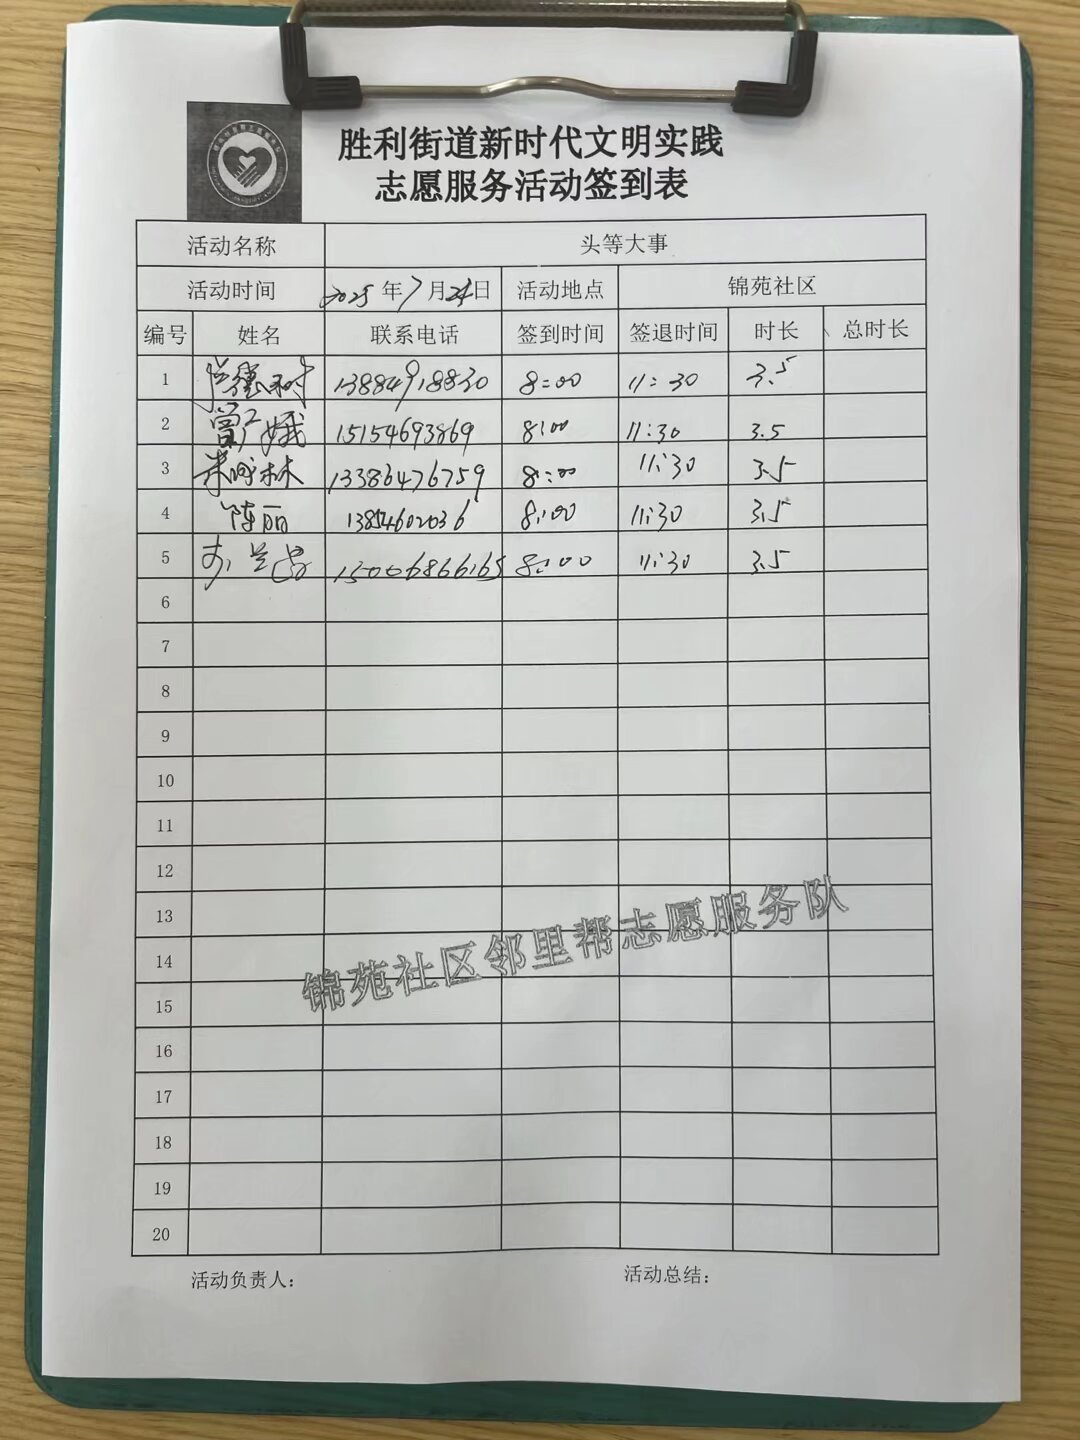 胜利街道新时代文明实践
志愿服务活动签到表
活动名称 头等大事
活动时间 2025年7月24日 活动地点 锦苑社区
编号 姓名 联系电话 签到时间 签退时间 时长 总时长
1 13884918830 8:00 11:30 3.5
2 15154693869 8:00 11:30 3.5
3 13386476759 8:00 11:30 3.5
4 陈丽 13854602036 8:00 11:30 3.5
5 15006866165 8:00 11:30 3.5
6
7
8
9
10
11
12
13
14
15
16
17
18
19
20
锦苑社区邻里帮志愿服务队
活动负责人： 活动总结：